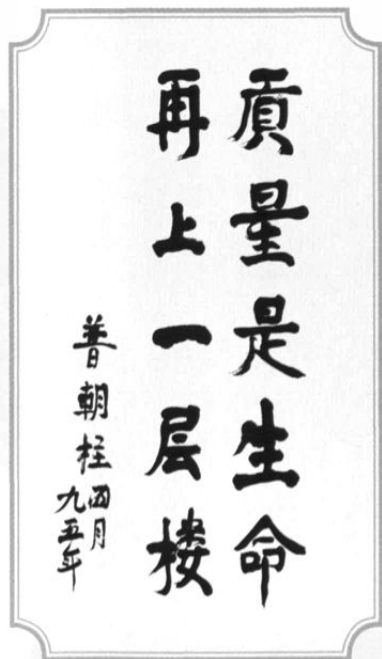 质量是生命
再上一层楼
普朝柱
九五年
四月